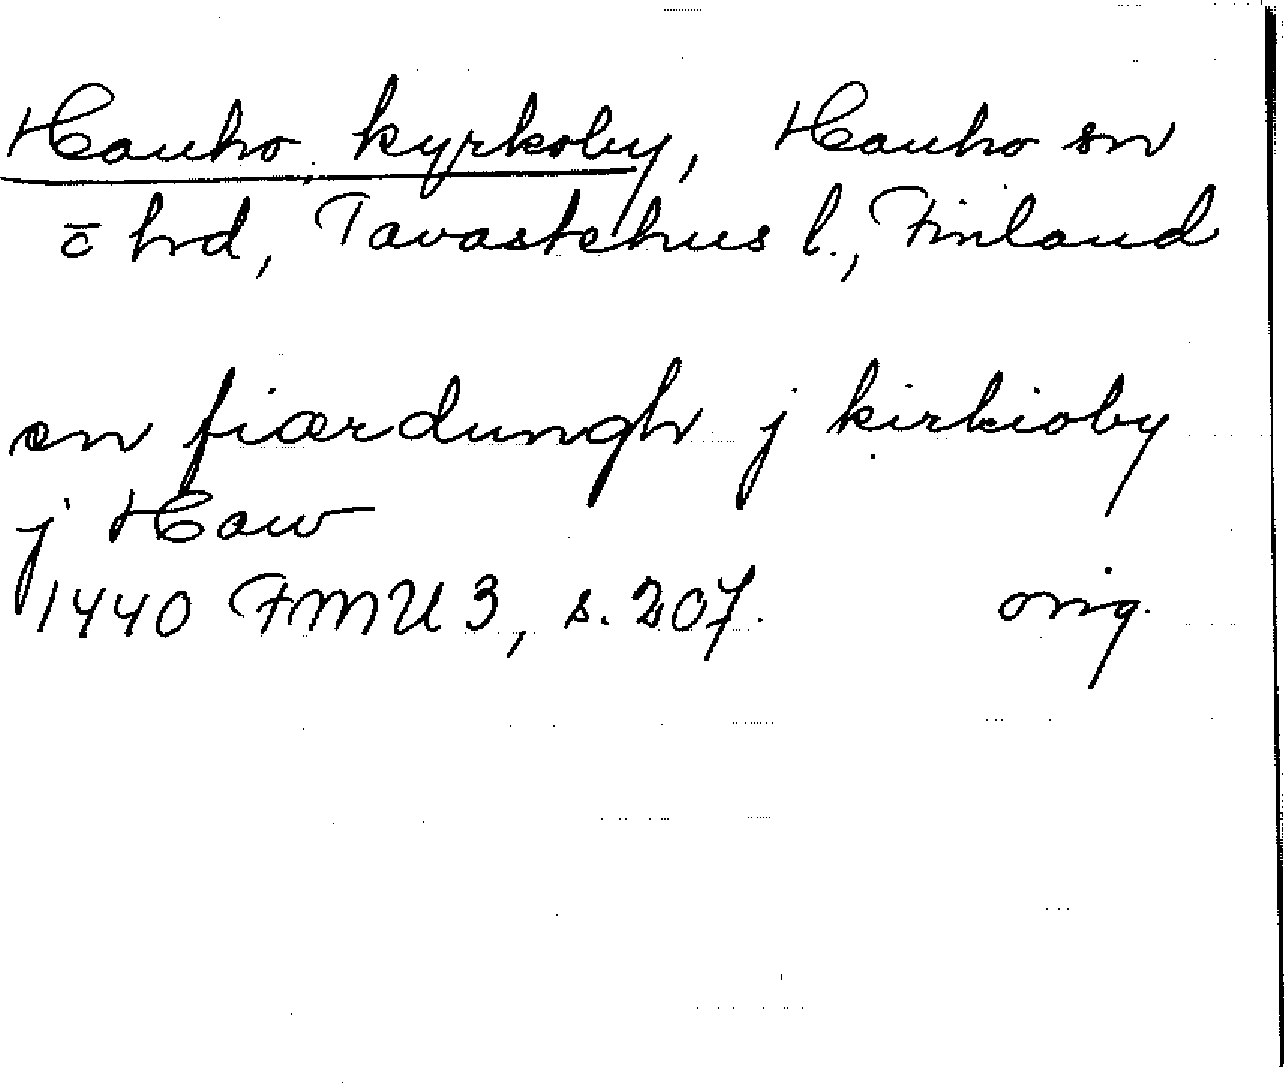 Hauho kyrkoby, Hauho sn
c̄ hrd, Tavastehus l., Finland
en fiærdungh j kirkioby
j Haw
1440 FMU 3, s. 207. orig.